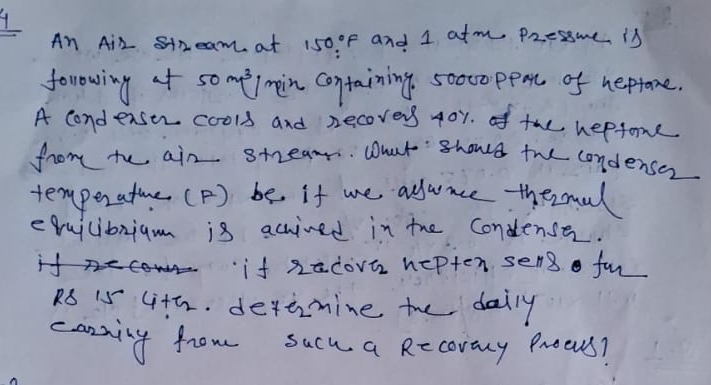 4
An Air stream at 150°F and 1 atm Pressure is
following at 50 m³/min containing 50000 PPM of heptane.
A condenser cools and recovers 40%. of the heptane
from the air stream. What should the condenser
temperature (F) be if we assume thermal
equilibrium is achived in the condenser.
if recover if recover hepten sells for
RS 15 liter. determine the daily
earning from such a Recovery Process?